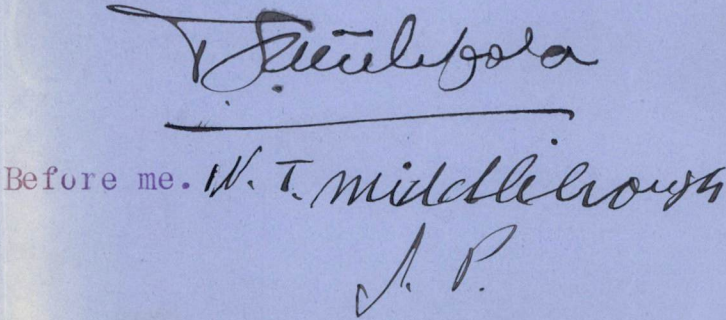 Before me. W. T. Middlibrough
J. P.